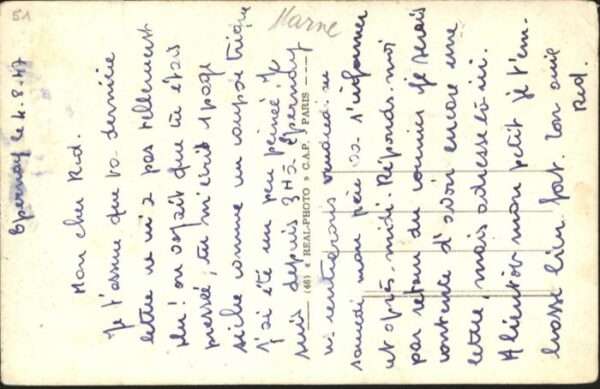 51
Marne
Epernay le 4.8.47
Mon cher Rid.
Je t'assure que ta dernière
lettre ne m'a pas tellement
plu! on voyait que tu étais
pressé, tu m'écrit 1 page
sèche comme un coup de trique
j'ai été un peu peinée je
suis depuis 3H à Epernay
(46) « REAL-PHOTO » C.A.P. PARIS
ns rentrerons vendredi ou
samedi mon père va s'informer
cet après-midi. Réponds-moi
par retour du courrier je serais
contente d'avoir encore une
lettre, mais adresse là ici.
A bientôt mon petit je t'em-
brasse bien fort. Ton
Rid.